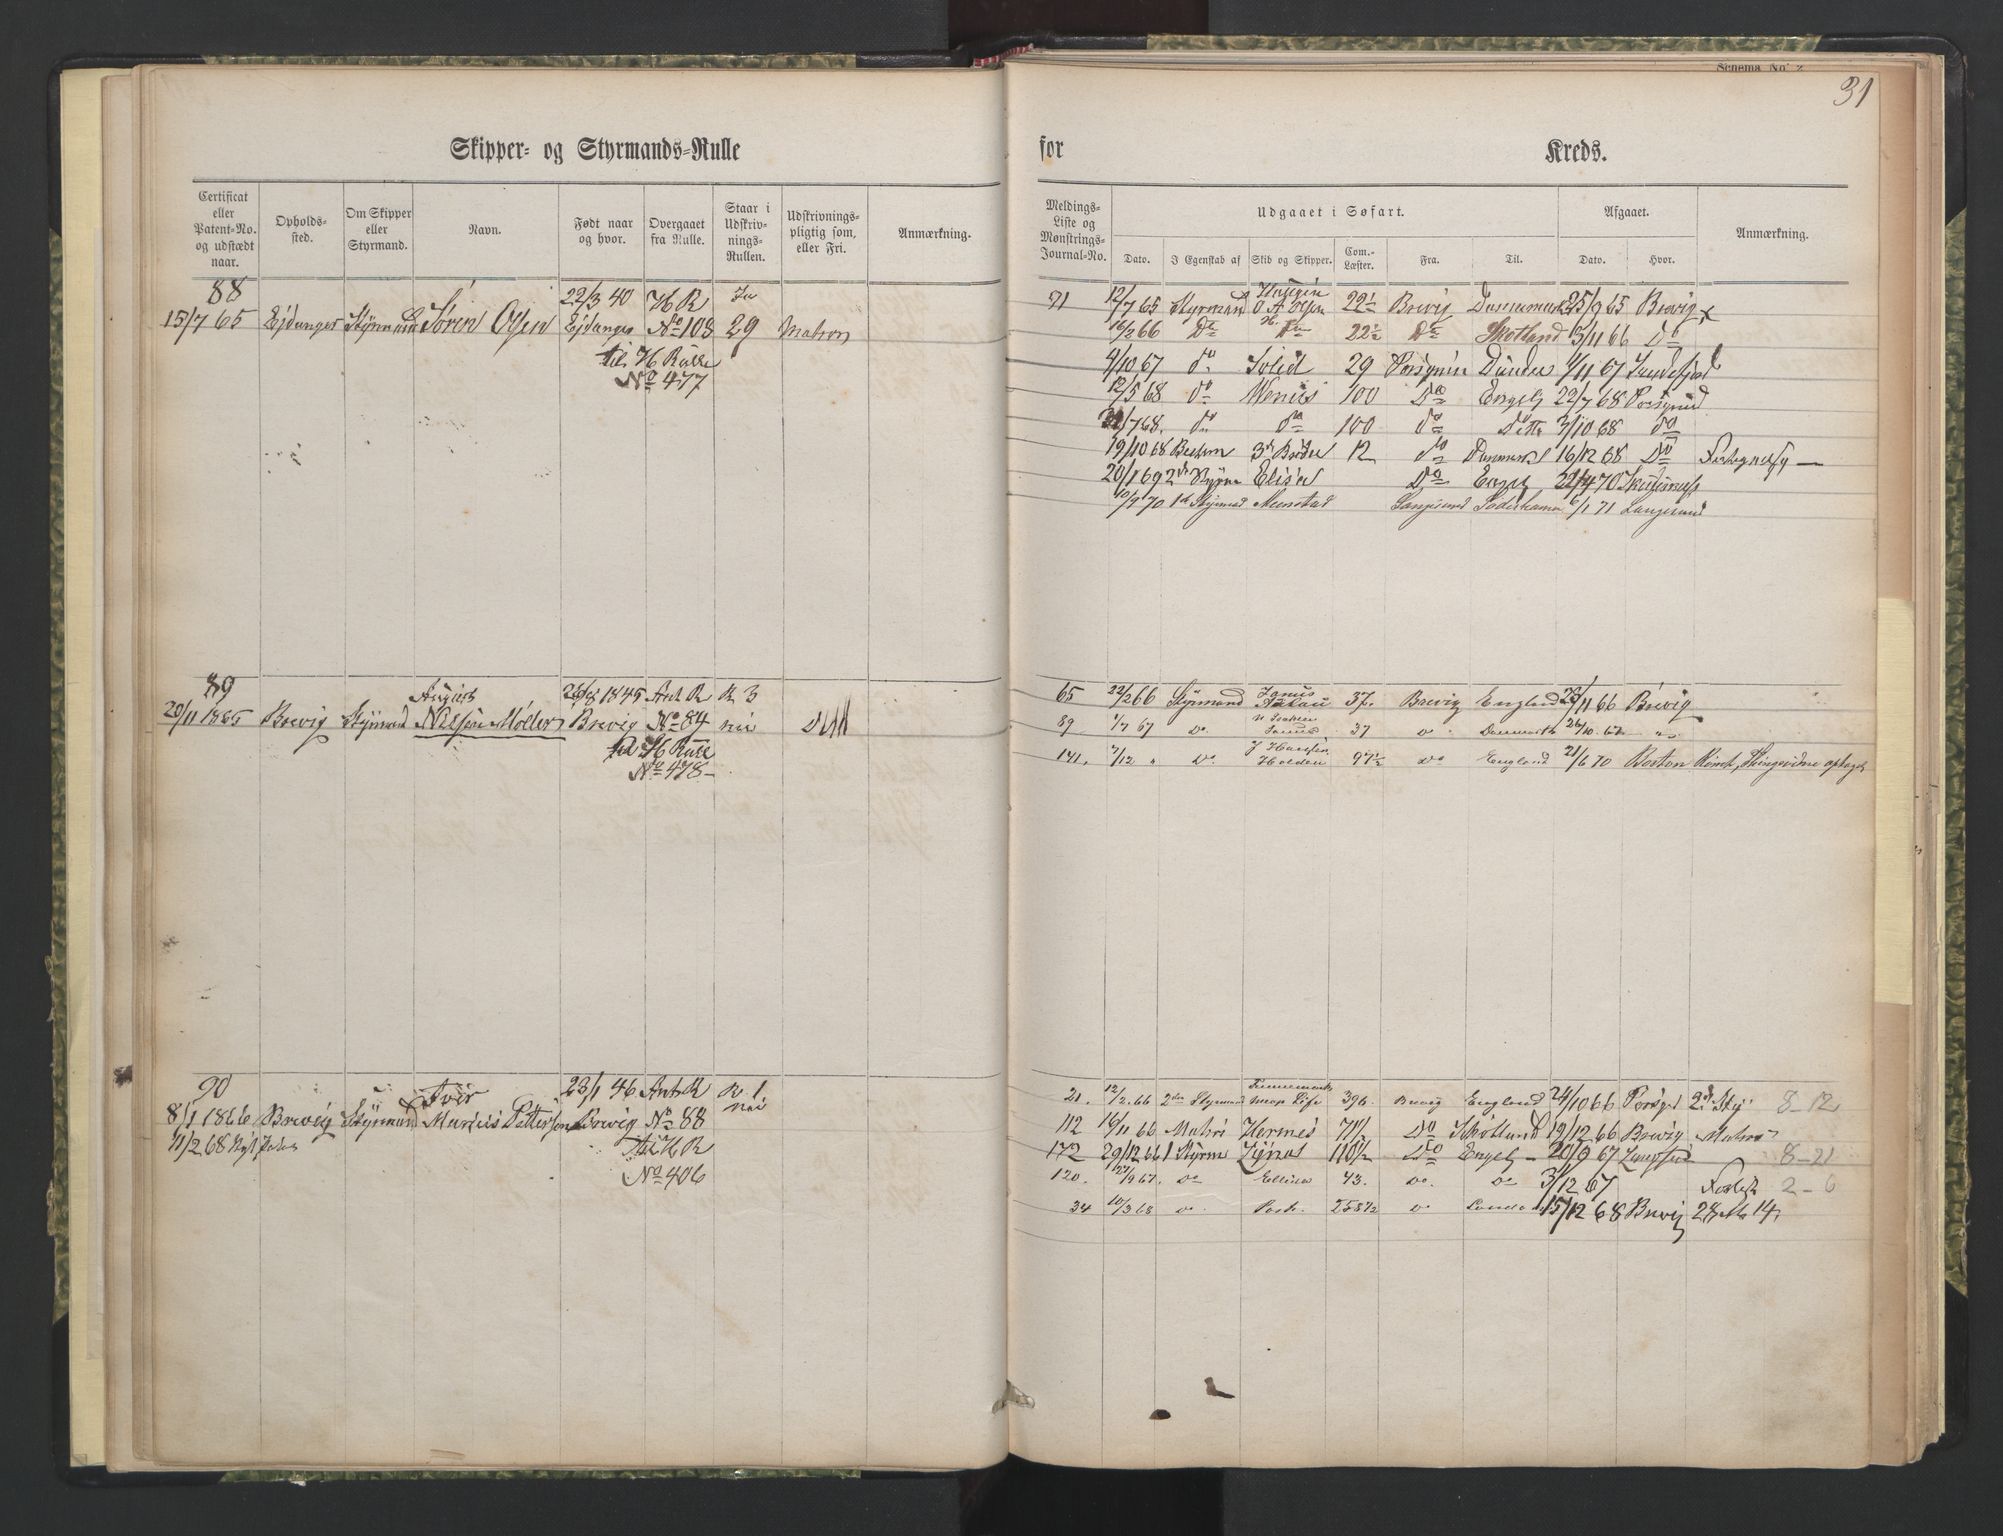 Schema No. 2
31
Skipper- og Styrmands-Rulle for Kreds.
Certificat eller Patent-No. og udstædt naar.
Opholds-sted.
Om Skipper eller Styrmand.
Navn.
Født naar og hvor.
Overgaaet fra Rulle.
Staar i Udskriv-nings-Rullen.
Udskrivnings-pligtig som, eller Fri.
Anmærkning.
Meldings-Liste og Mønstrings-Journal-No.
Udgaaet i Søfart.
Afgaaet.
Anmærkning.
Dato. I Egenskab af Skib og Skipper. Com.-Læster. Fra. Til. Dato. Hvor.
88 22/3 40 H R Ja
15/7 65 Ejdanger Styrmand Søren Olsen Ejdanger No 108 29 Matros
til H Rulle
No 477
71 12/7 65 Styrmand O A Olsen 22½ Brevig Danmark 25/9 65 Brevig
16/2 66 Do Do 22½ Do Skotland 13/11 66 Do
4/10 67 do Solid 29 Porsgrun 1/11 67 Sandefjord
12/5 68 do Venus 100 Do Engelg 22/7 68 Porsgrund
/7 68 do do 100 do Ditto 3/10 68 do
19/10 68 Bestm 3 Brødre 12 do Danmark 16/12 68 Do
20/1 69 2de Styrm Elise Do Engelg /4 70
10/7 70 1st Styrmd Menstad Langesund Søderhamn 6/1 71 Langesund
89 August 26/8 1845 Ant R R 3
20/11 1865 Brevig Styrmand Nilsen Møller Brevig No 84 nei
til H Rulle
No 478
65 22/2 66 Styrmand 37 Brevig England 23/11 66 Brevig
89 1/7 67 Do 37 Danmark 26/10 67
141. 7/12 " Do J Hansen Holden 97½ Do England 21/6 70 Boston
90 Iver 23/1 46 Ant R R. 1
8/1 1866 Brevig Styrmand Marius Pettersen Brevig No 88 nei
11/2 68
til H R
No 406
21. 12/2. 66 2den Styrmand 396. Brevig England 24/10 66 Porsgr 2d Sty 8-12
112 16/11 66 Matros Hermes 77½ Do Skotland 19/12 66 Brevig Matros
172 29/12 66 1 Styrm Zynos 110½ Do Engelg 20/9 67 Langesund 8-21
120. 27/9 67. Do Ellida 43. Do. Do 3/12 67 2-6
34 10/3 68 Do 258½ Do London 15/12 68 Brevig 28 M 14